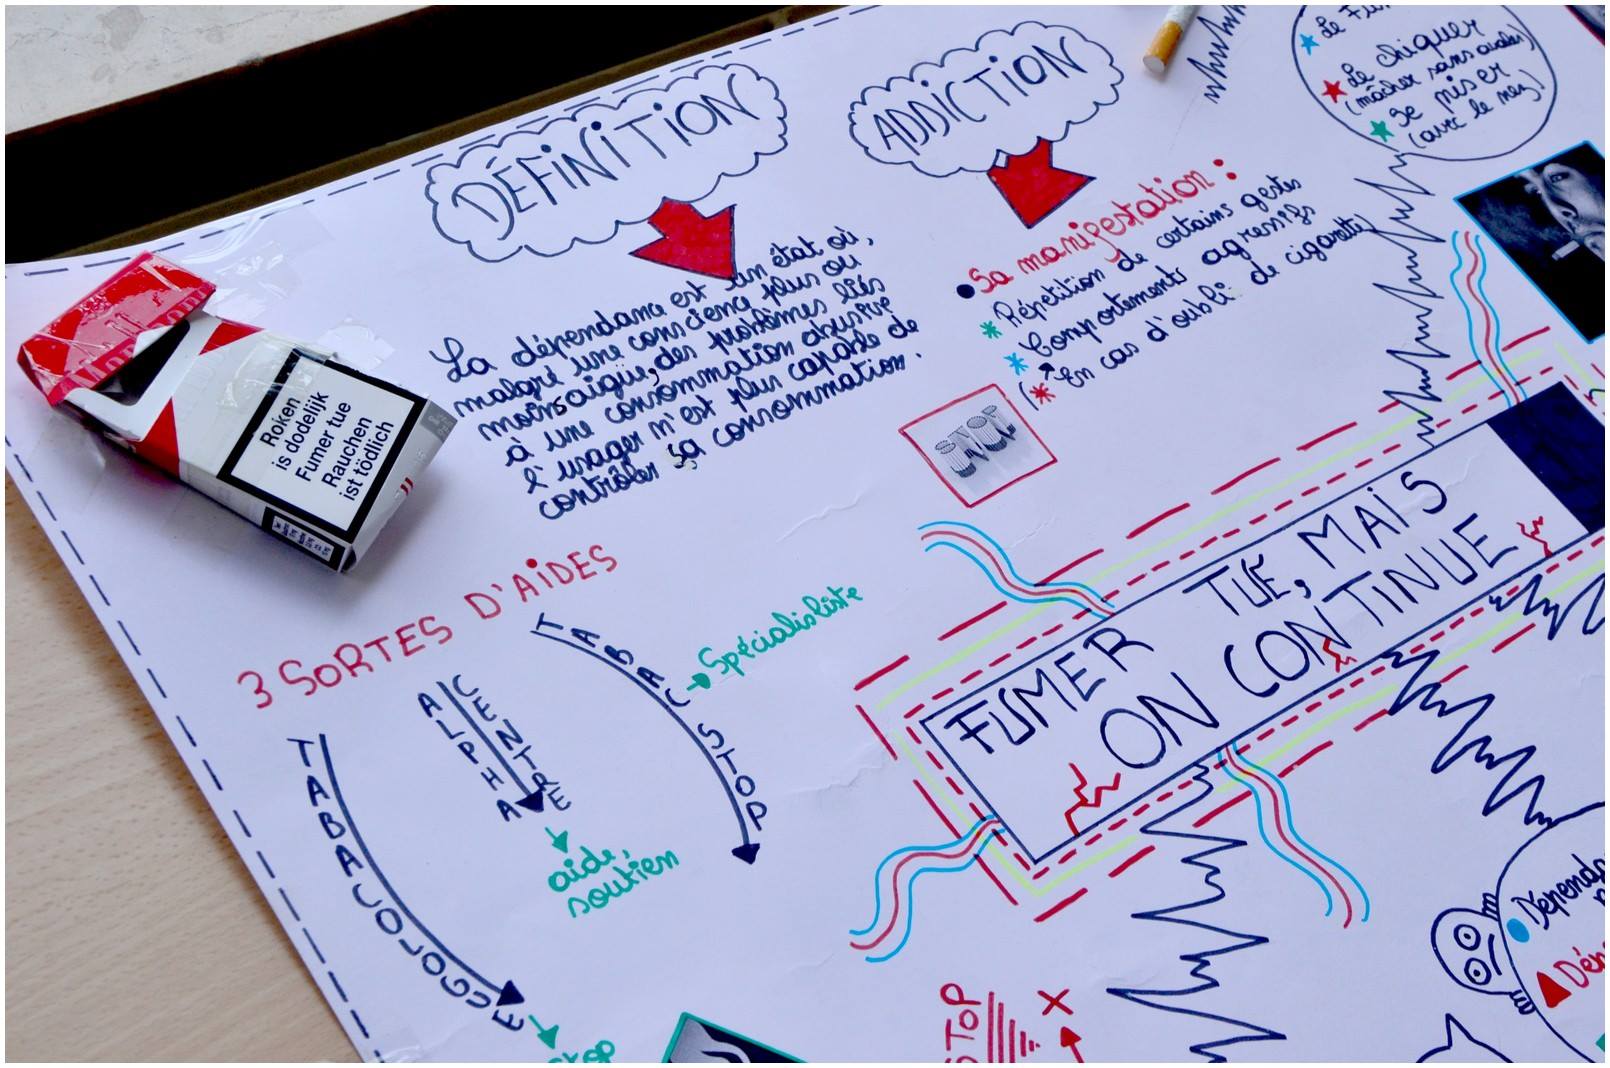 DÉFINITION
La dépendance est un état où,
malgré une conscience plus ou
moins aigüe, des problèmes liés
à une consommation abusive
l'usager n'est plus capable de
contrôler sa consommation.
ADDICTION
• Sa manifestation :
* Répétition de certains gestes
* Comportements agressifs
(* En cas d'oubli de cigarette)
Le
Le chiquer
(mâcher sans avaler)
Se piser
(avec le nez)
Roken
is dodelijk
Fumer tue
Rauchen
ist tödlich
3 SORTES D'AIDES
TABACOLOGUE
stop
CENTRE
ALPHA
aide,
soutien
TABAC STOP
Spécialisliste
FUMER TUE, MAIS
ON CONTINUE
STOP
X
Dépend
Dép